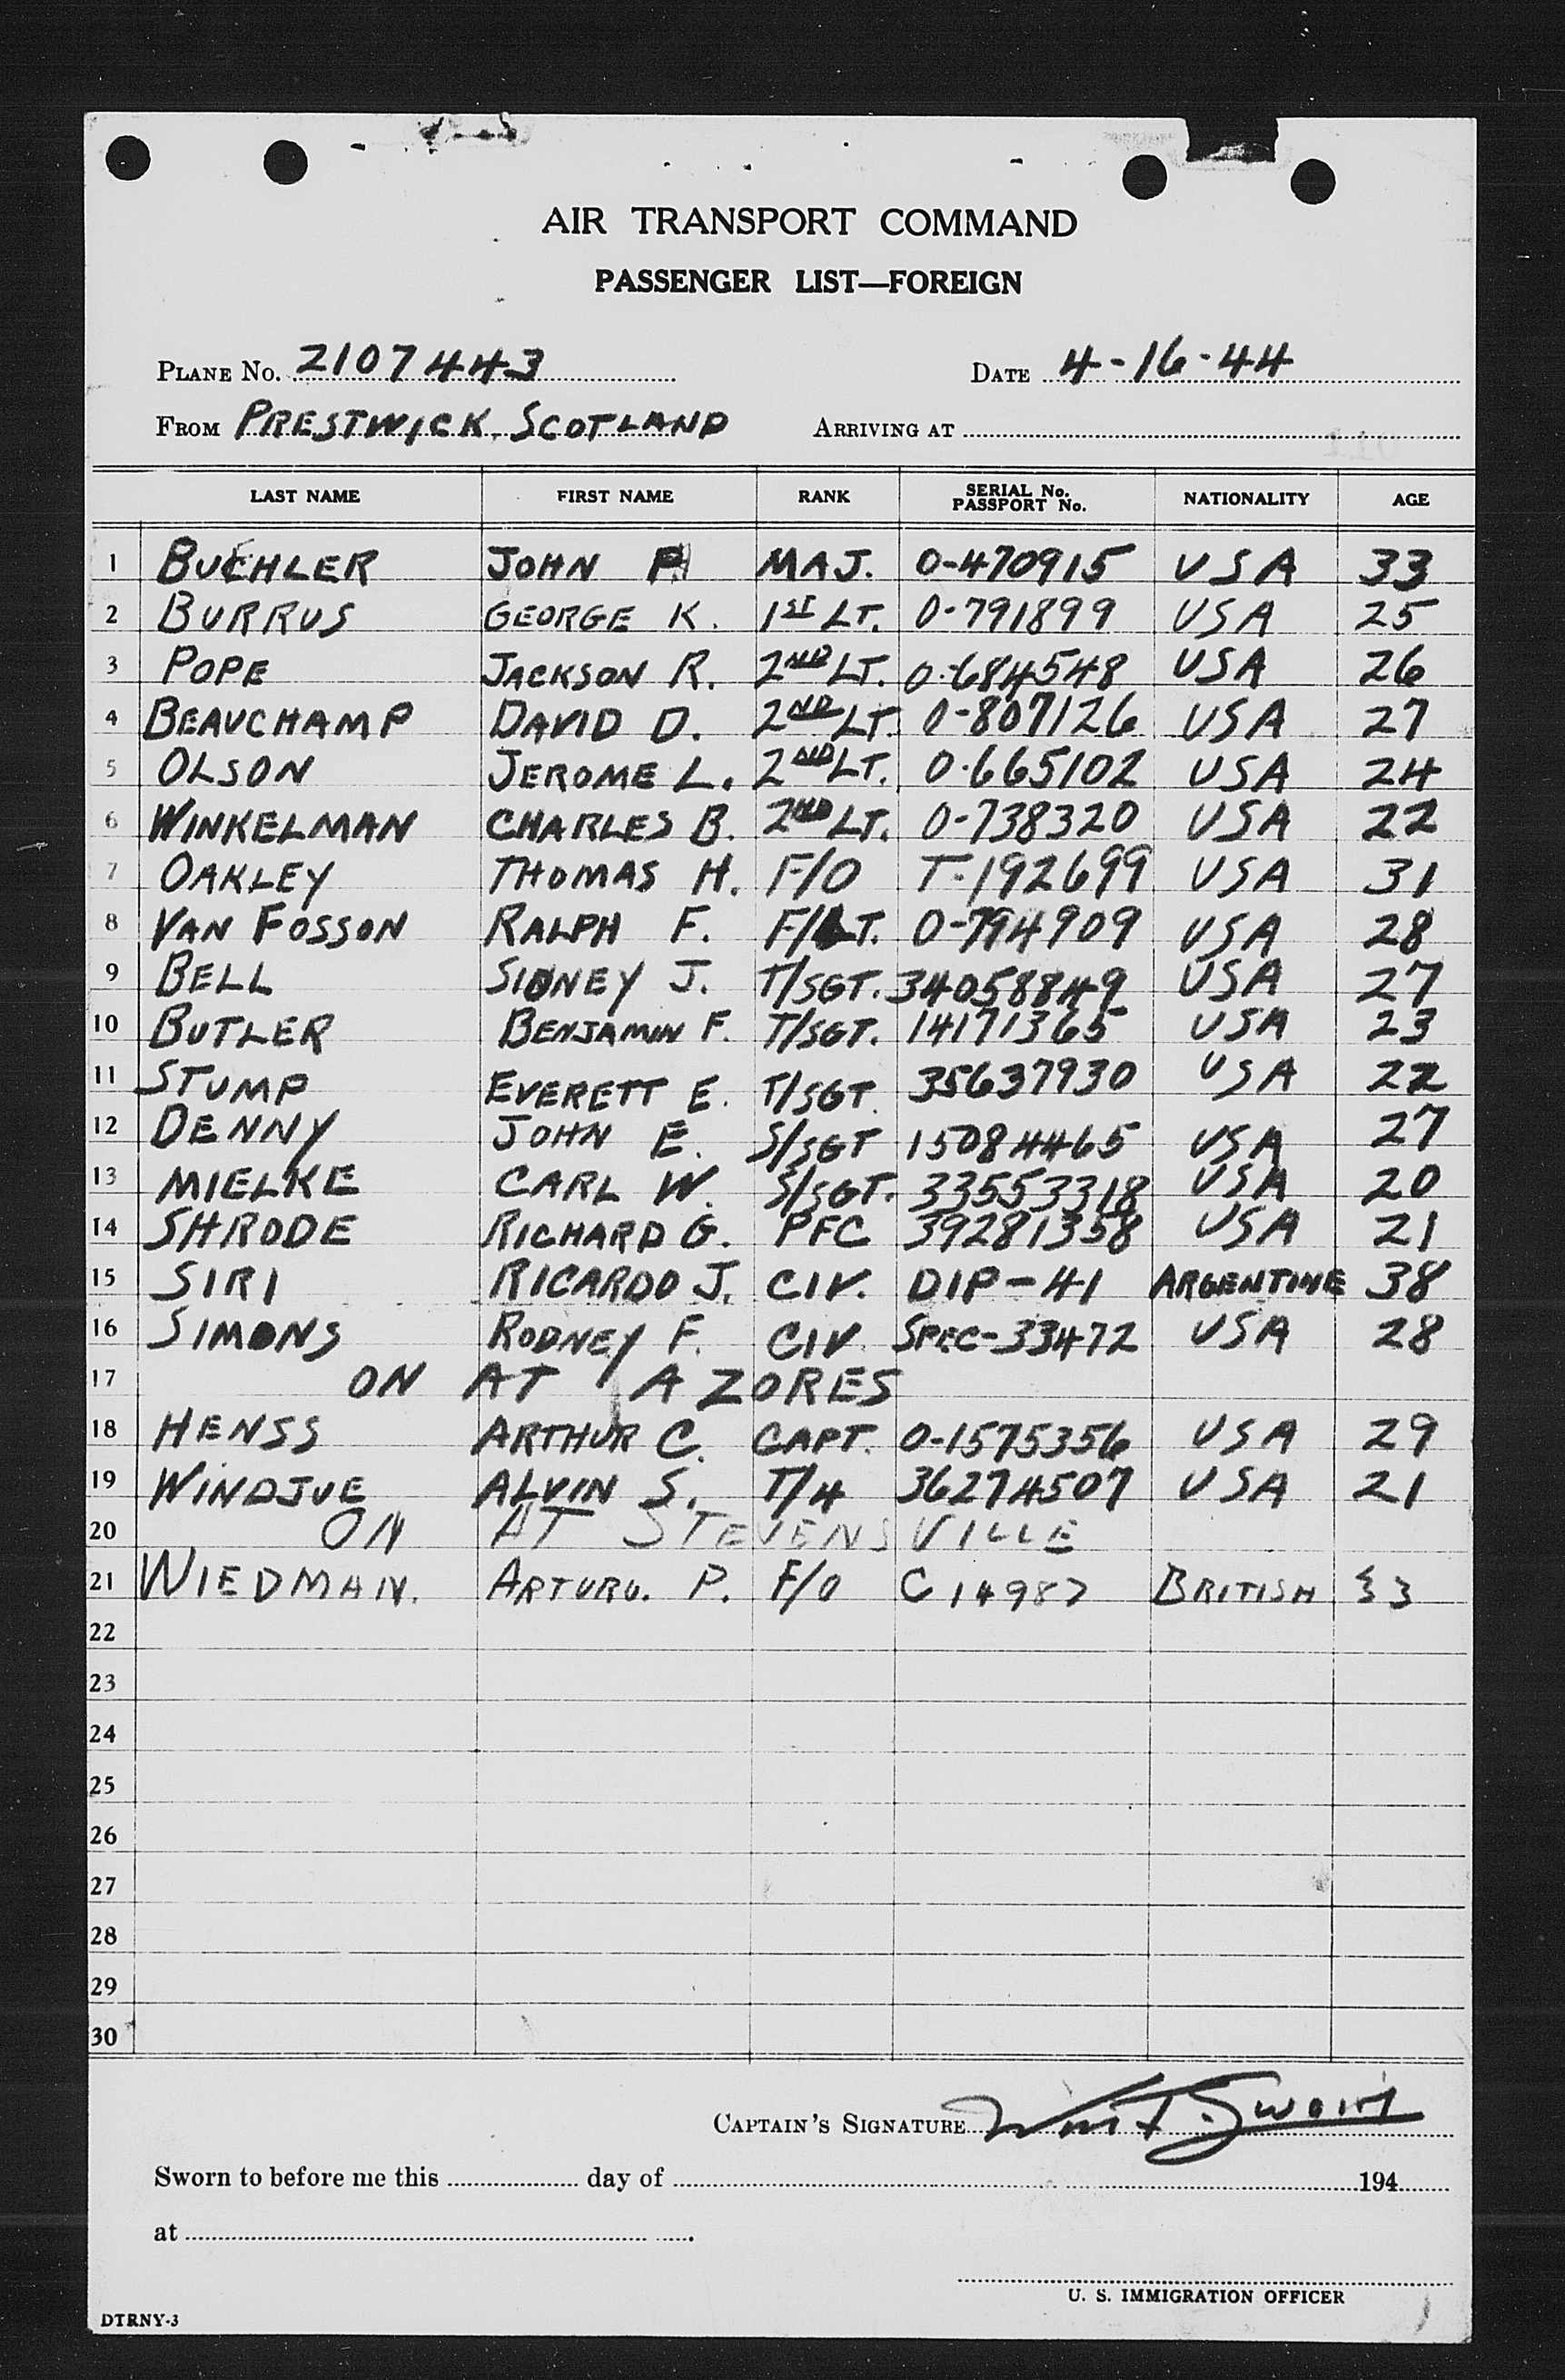 AIR TRANSPORT COMMAND
PASSENGER LIST—FOREIGN
PLANE No. 2107443 DATE 4-16-44
FROM PRESTWICK, SCOTLAND ARRIVING AT
LAST NAME FIRST NAME RANK SERIAL No. PASSPORT No. NATIONALITY AGE
1 BUEHLER JOHN P. MAJ. O-470915 USA 33
2 BURRUS GEORGE K. 1ST LT. O-791899 USA 25
3 POPE JACKSON R. 2ND LT. O-684548 USA 26
4 BEAUCHAMP DAVID D. 2ND LT. O-807126 USA 27
5 OLSON JEROME L. 2ND LT. O-665102 USA 24
6 WINKELMAN CHARLES B. 2ND LT. O-738320 USA 22
7 OAKLEY THOMAS H. F/O T-192699 USA 31
8 VAN FOSSON RALPH F. F/LT. O-794909 USA 28
9 BELL SIDNEY J. T/SGT. 34058849 USA 27
10 BUTLER BENJAMIN F. T/SGT. 14171365 USA 23
11 STUMP EVERETT E. T/SGT. 35637930 USA 22
12 DENNY JOHN E. S/SGT 15084465 USA 27
13 MIELKE CARL W. S/SGT. 33553318 USA 20
14 SHRODE RICHARD G. PFC 39281358 USA 21
15 SIRI RICARDO J. CIV. DIP-41 ARGENTINE 38
16 SIMONS RODNEY F. CIV. SPEC-33472 USA 28
17 ON AT AZORES
18 HENSS ARTHUR C. CAPT. O-1575356 USA 29
19 WINDJUE ALVIN S. T/4 36274507 USA 21
20 ON AT STEVENSVILLE
21 WIEDMAN. ARTURO. P. F/O C 14987 BRITISH 33
22
23
24
25
26
27
28
29
30
CAPTAIN'S SIGNATURE
Sworn to before me this day of 194
at
U. S. IMMIGRATION OFFICER
DTRNY-3